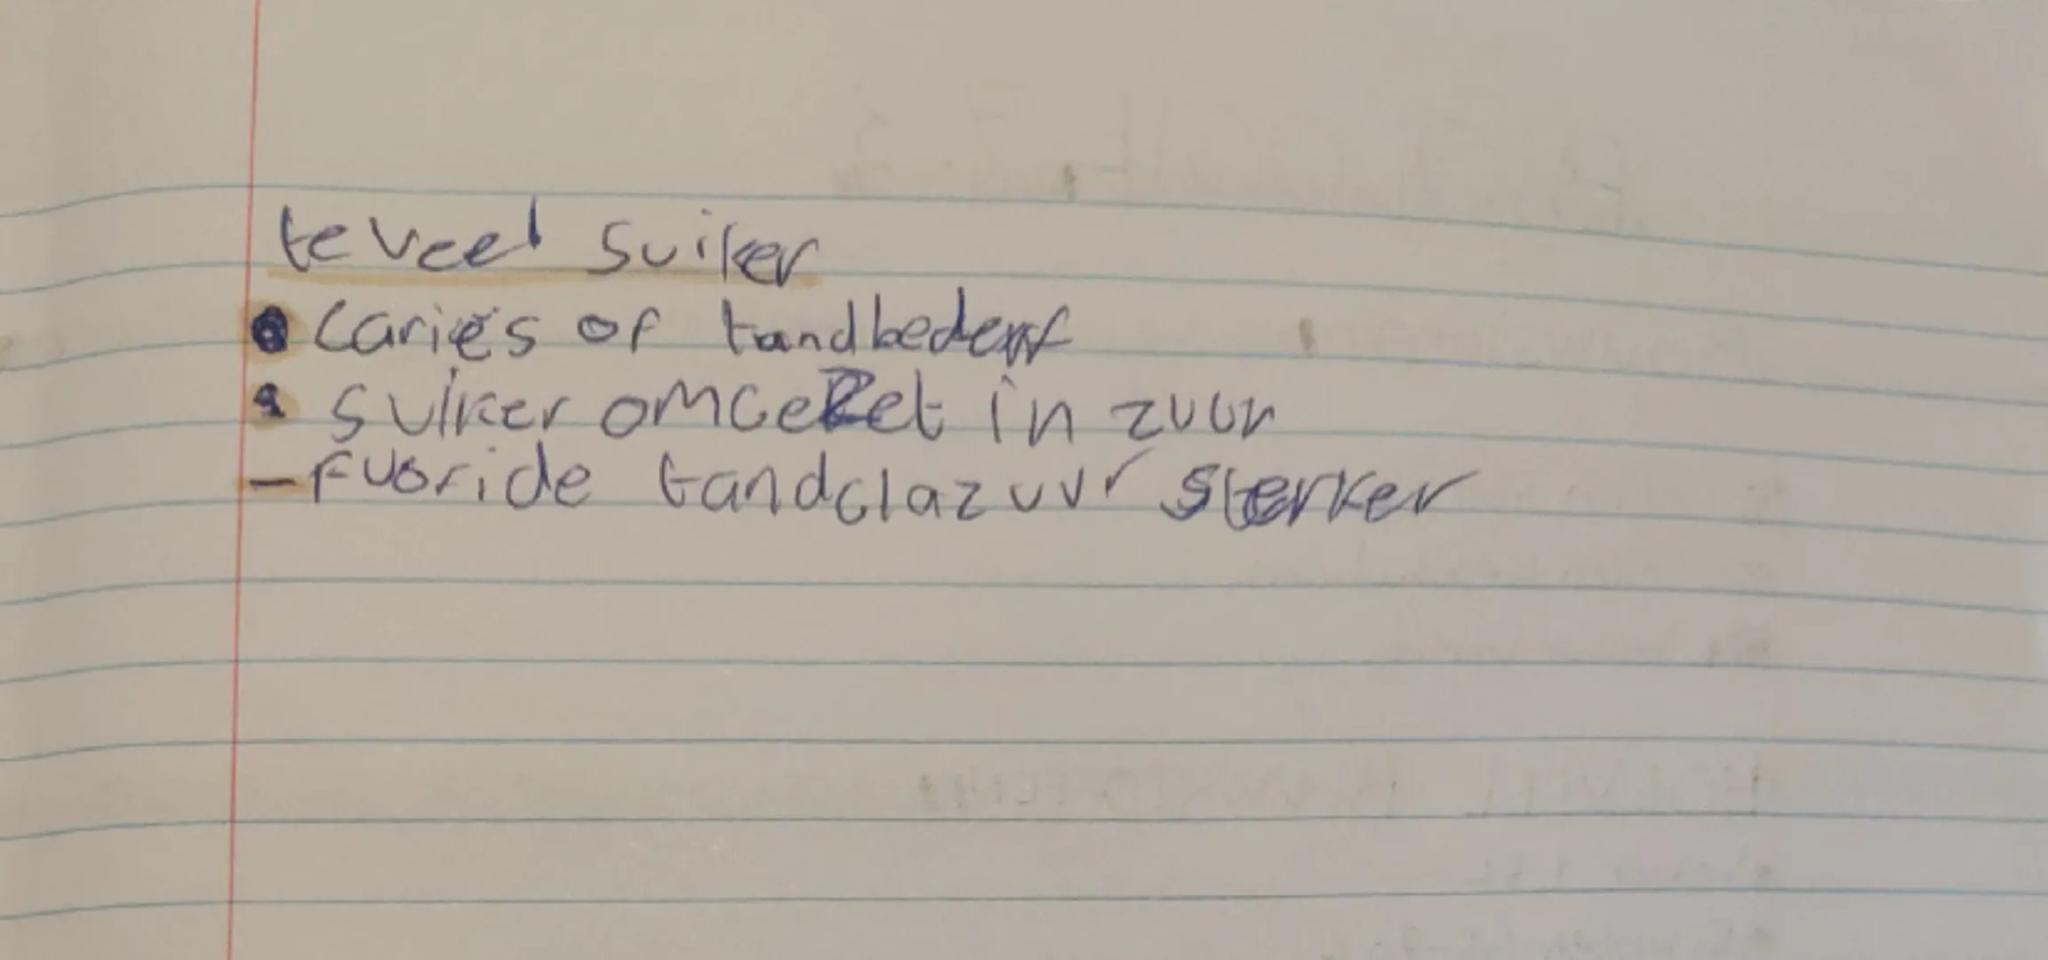 te veel suiker
• Cariës of tandbederf
• suiker omgezet in zuur
- Fuoride tandglazuur sterker